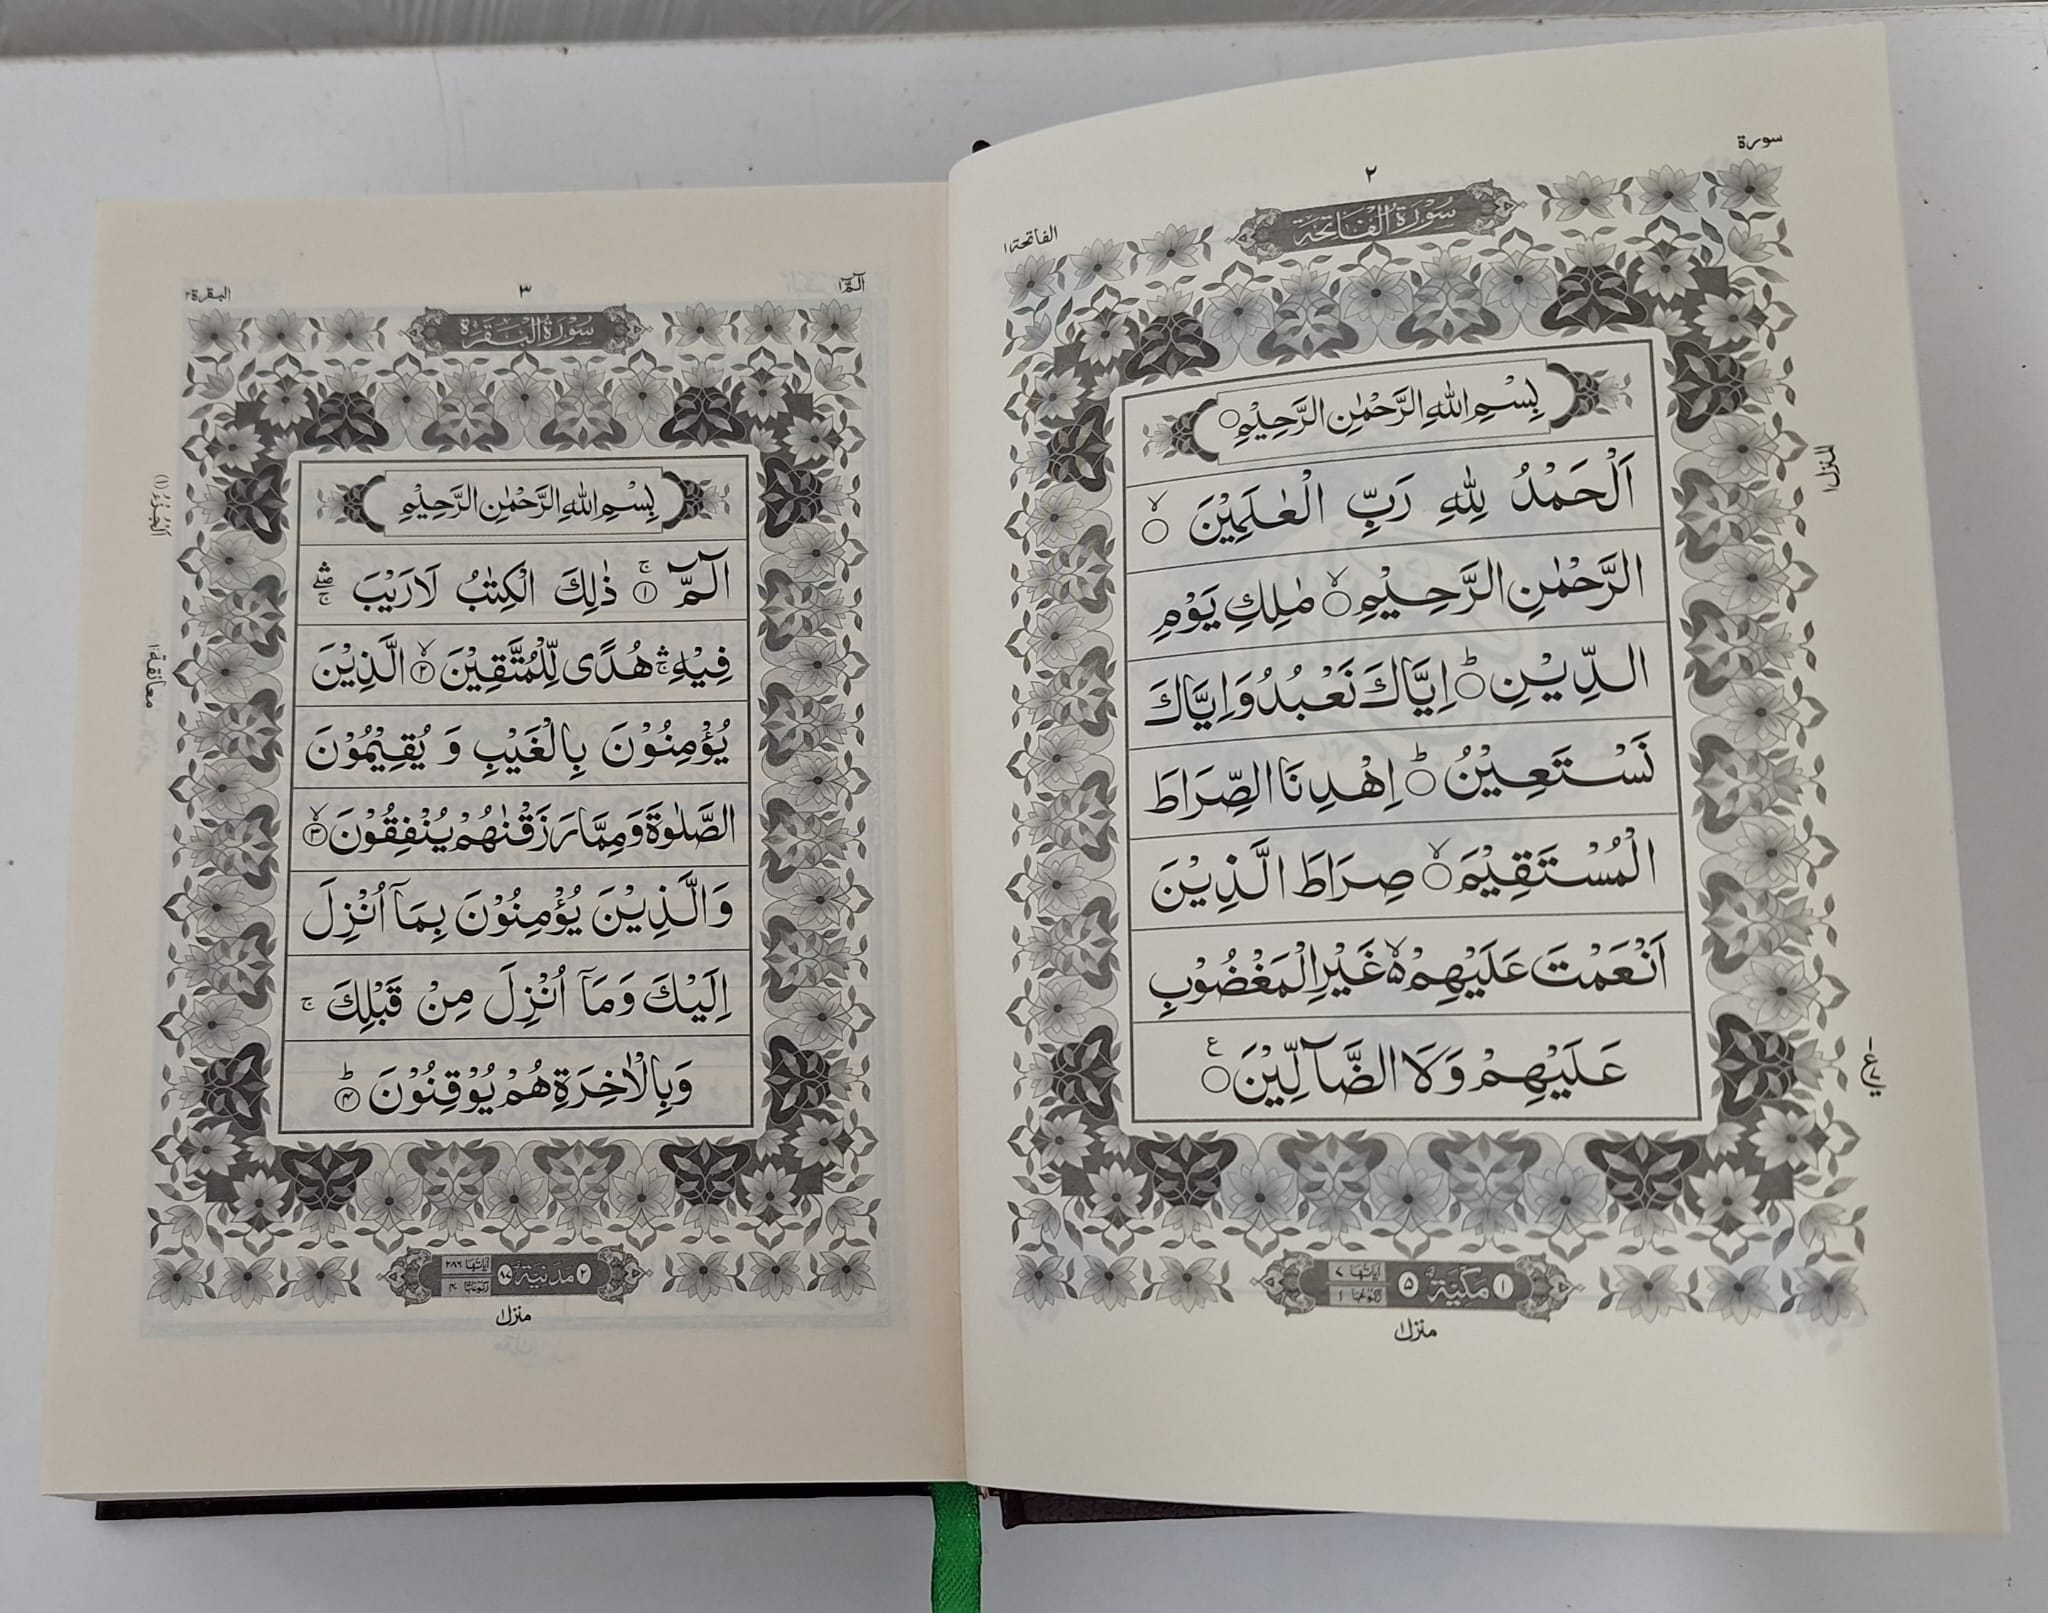 سورة
٢
الفاتحة ١
سُوْرَةُ الْفَاتِحَةِ
بِسْمِ اللهِ الرَّحْمٰنِ الرَّحِيْمِ ○
اَلْحَمْدُ لِلّٰهِ رَبِّ الْعٰلَمِيْنَ ○ۙ
الرَّحْمٰنِ الرَّحِيْمِ ○ۙ مٰلِكِ يَوْمِ
الدِّيْنِ ○ؕ اِيَّاكَ نَعْبُدُ وَاِيَّاكَ
نَسْتَعِيْنُ ○ؕ اِهْدِنَا الصِّرَاطَ
الْمُسْتَقِيْمَ ○ۙ صِرَاطَ الَّذِيْنَ
اَنْعَمْتَ عَلَيْهِمْ ۙ۬ غَيْرِ الْمَغْضُوْبِ
عَلَيْهِمْ وَلَا الضَّآلِّيْنَ ○ع
المنزل ١
١ مَكِّيَّةٌ ٥ اٰيَاتُهَا ٧ رُكُوْعُهَا ١
منزل ١
الٓمّٓ ١
٣
البقرة ٢
سُوْرَةُ الْبَقَرَةِ
بِسْمِ اللهِ الرَّحْمٰنِ الرَّحِيْمِ
الٓمّٓ ۚ ١ ذٰلِكَ الْكِتٰبُ لَا رَيْبَ ۛۖۚ
فِيْهِ ۛۚ هُدًى لِّلْمُتَّقِيْنَ ۙ ٢ الَّذِيْنَ
يُؤْمِنُوْنَ بِالْغَيْبِ وَ يُقِيْمُوْنَ
الصَّلٰوةَ وَمِمَّا رَزَقْنٰهُمْ يُنْفِقُوْنَ ۙ ٣
وَالَّذِيْنَ يُؤْمِنُوْنَ بِمَآ اُنْزِلَ
اِلَيْكَ وَمَآ اُنْزِلَ مِنْ قَبْلِكَ ۚ
وَبِالْاٰخِرَةِ هُمْ يُوْقِنُوْنَ ؕ ٤
اَلْجُزْءُ (١)
معانقة ١
٢ مَدَنِيَّةٌ ٨٧ اٰيَاتُهَا ٢٨٦ رُكُوْعَاتُهَا ٤٠
منزل ١